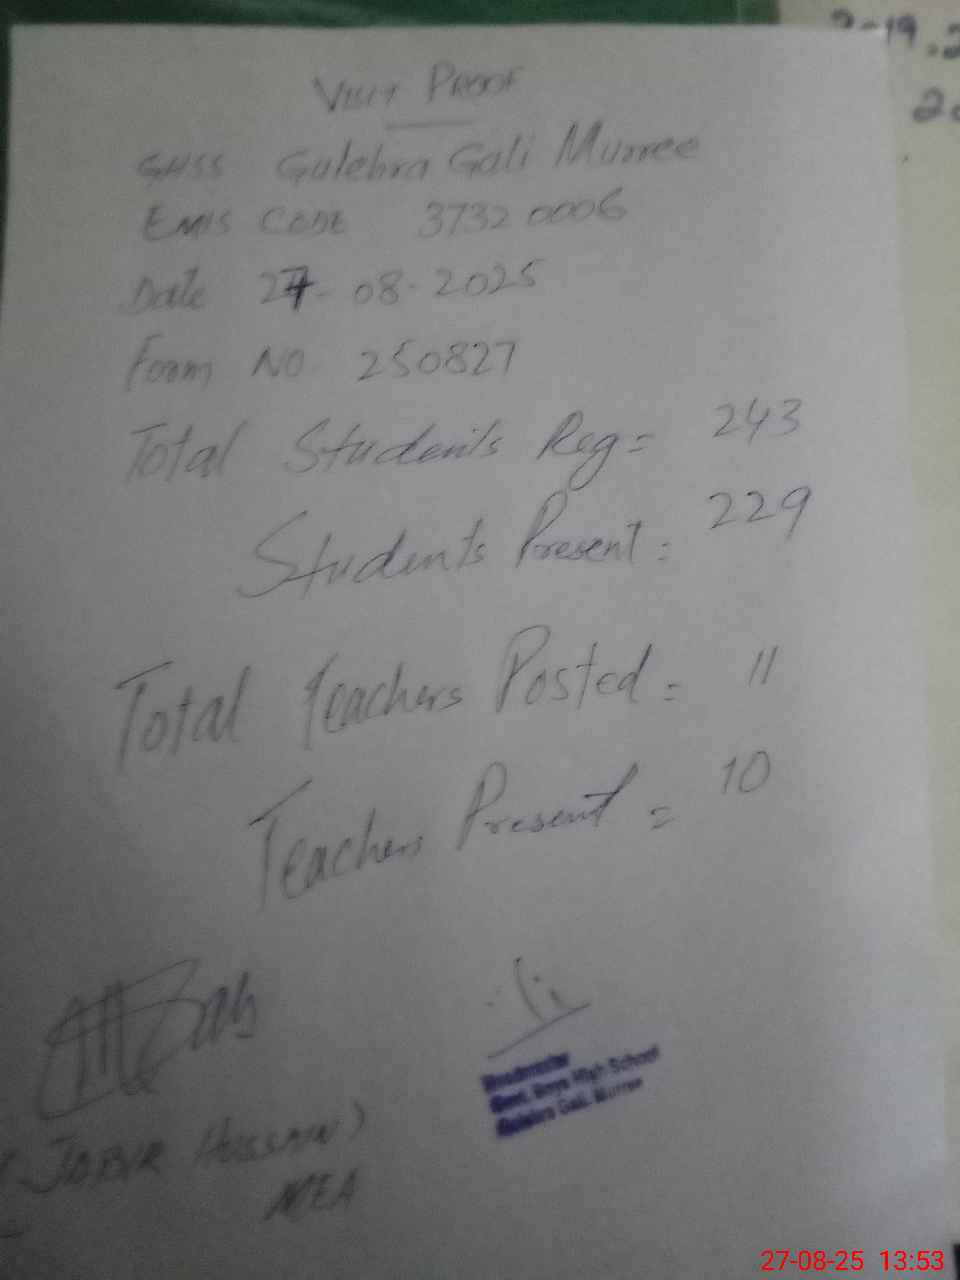 2-19.2
20
VISIT PROOF
GHSS Gulehra Gali Murree
EMIS CODE 37320006
Date 27-08-2025
Form NO. 250827
Total Students Reg = 243
Students Present = 229
Total Teachers Posted = 11
Teachers Present = 10
Headmaster
Govt. Boys High School
Gulehra Gali, Murree
(JABIR HUSSAIN)
MEA
27-08-25 13:53